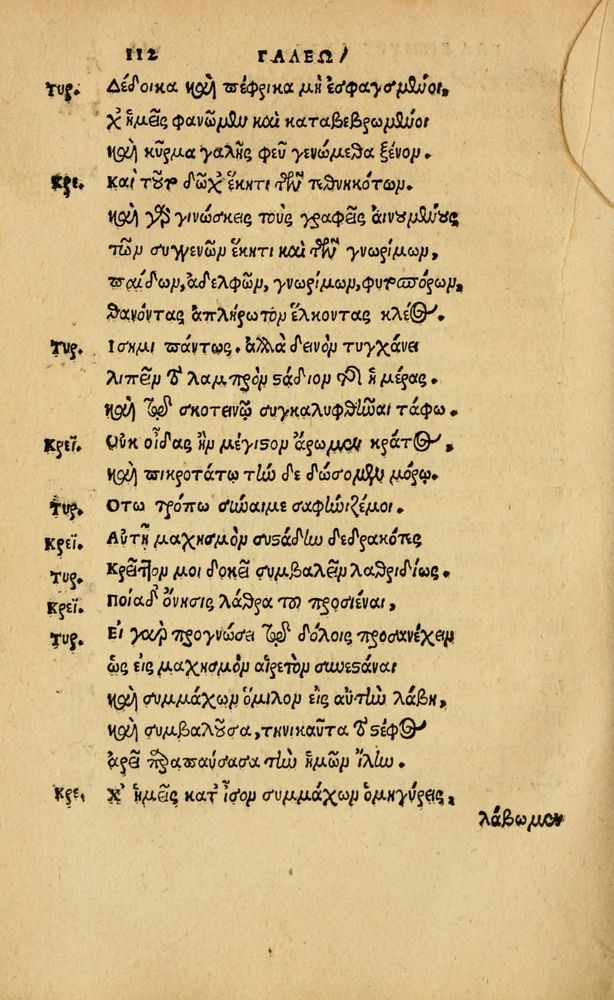 112 ΓΑΛΕΩ/
Τυρ. Δέδοικα καὶ πέφρικα μὴ ἐσφαγσμένοι,
χ' ἡμεῖς φανῶμεν καὶ καταβεβρωμένοι
καὶ κῦρμα γαλῆς φεῦ γενώμεθα ξένον.
Κρε. Καὶ τοῦν δῶχ' ἕκητι τῶν τεθνηκότων.
καὶ γὰρ γινώσκεις τοὺς γραφεῖς αἰνουμένους
τῶν συγγενῶν ἕκητι καὶ τῶν γνωρίμων,
παίδων, ἀδελφῶν, γνωρίμων, φυτοσπόρων,
θανόντας ἀπλήρωτον ἕλκοντας κλέος.
Τυρ. Ισημι πάντως. ἀλλὰ δεινὸν τυγχάνει
λιπεῖν τὸ λαμπρὸν στάδιον τῆς ἡμέρας.
καὶ τῷ σκοτεινῷ συγκαλυφθῆναι τάφω.
Κρεΐ. Οὐκ οἶδας ἣν μέγιστον ἄρωμεν κράτος,
καὶ πικροτάτῳ τήνδε δώσομεν μόρῳ.
Τυρ. Οτω τρόπω σύναιμε σαφηνιζέμοι.
Κρεΐ. Αὐτῇ μαχησμὸν συστάδην δεδρακότες
Τυρ. Κρεῖττον μοι δοκεῖ συμβαλεῖν λαθριδίως.
Κρεΐ. Ποίαδ' ὄνησις λάθρα του προσιέναι,
Τυρ. Εἰ γὰρ προγνώσει τοῖς δόλοις προσανέχειν
ὡς εἰς μαχησμὸν αἱρετὸν συνεστάναι
καὶ συμμάχων ὅμιλον εἰς αὐτὴν λάβῃ,
καὶ συμβαλοῦσα, τηνικαῦτα τὸ στέφος
ἀρεῖ καταπαύσασα τὴν ἡμῶν ἴλην.
Κρε. Χ' ἡμεῖς κατ' ἶσον συμμάχων ὁμηγύρεις,
λάβωμεν